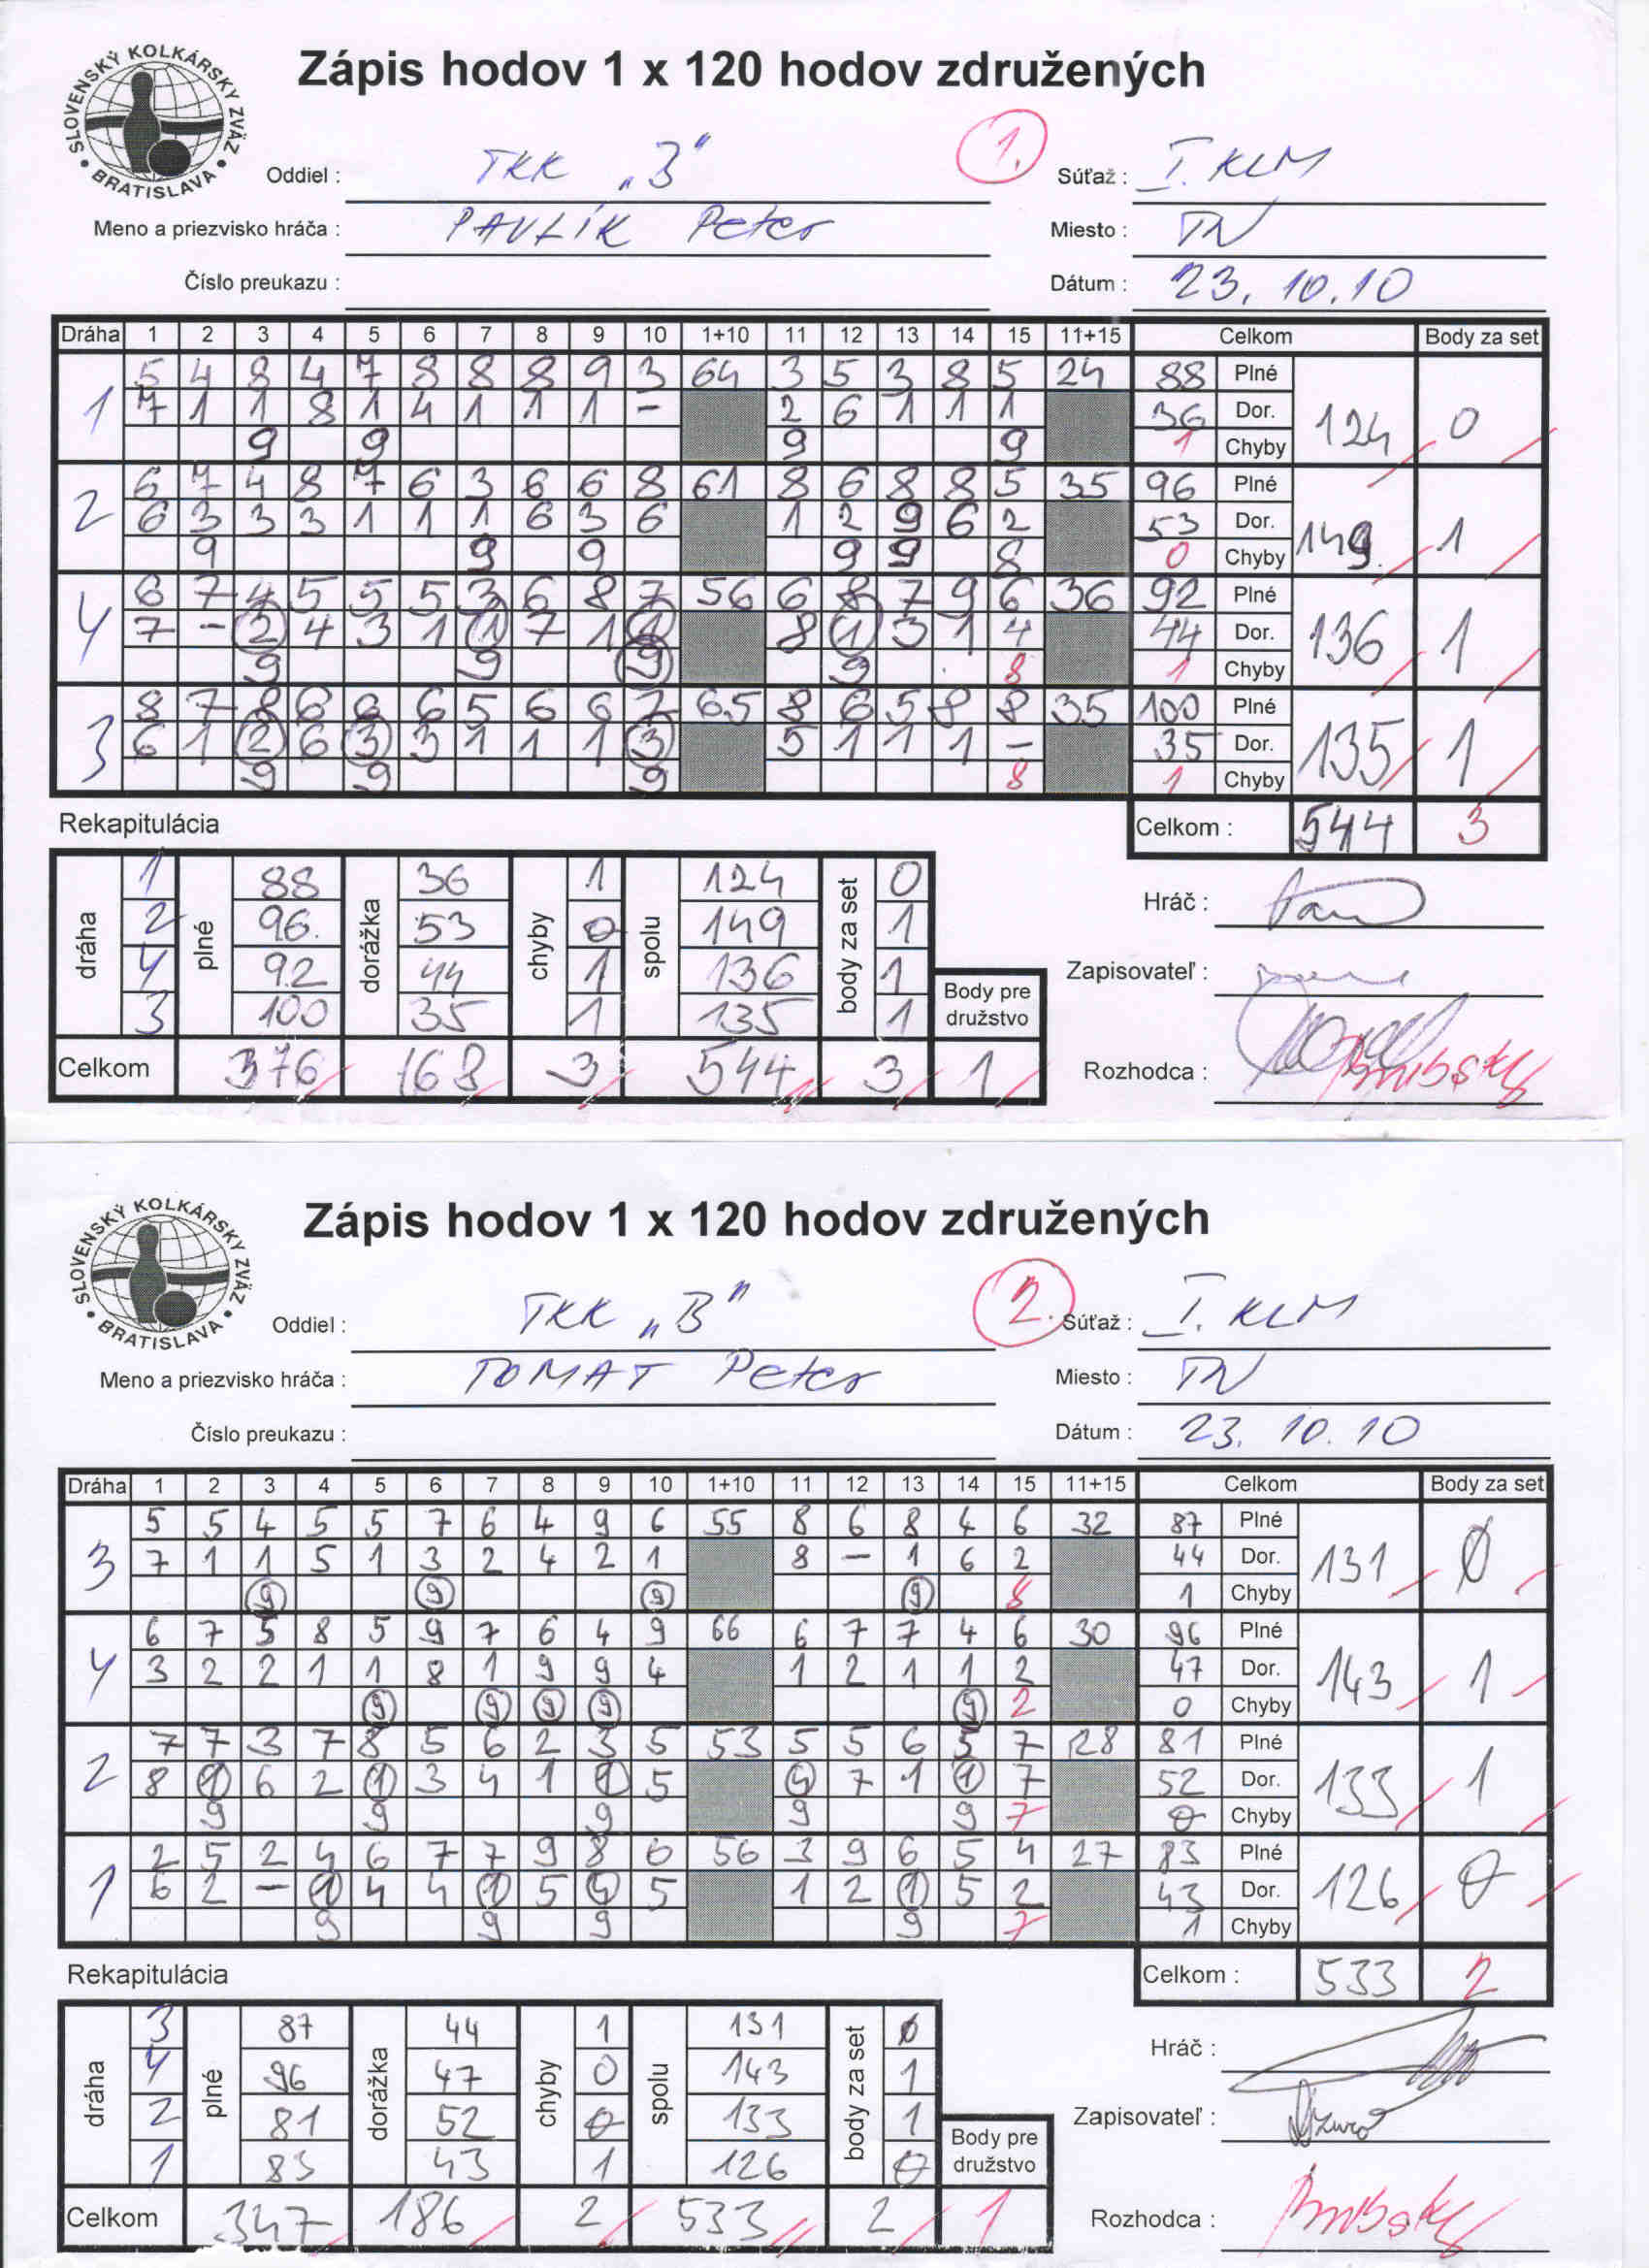 SLOVENSKÝ KOLKÁRSKY ZVÄZ • BRATISLAVA •
Zápis hodov 1 x 120 hodov združených
Oddiel : TKK „B“ 1. Súťaž : I. KLM
Meno a priezvisko hráča : PAVLÍK Peter Miesto : TN
Číslo preukazu : Dátum : 23. 10. 10
Dráha 1 2 3 4 5 6 7 8 9 10 1+10 11 12 13 14 15 11+15 Celkom Body za set
1 5 4 8 4 7 8 8 8 9 3 64 3 5 3 8 5 24 88 Plné 124 0
7 1 1 8 1 4 1 1 1 - 2 6 1 1 1 36 Dor.
9 9 9 9 1 Chyby
2 6 7 4 8 7 6 3 6 6 8 61 8 6 8 8 5 35 96 Plné 149 1
6 3 3 3 1 1 1 6 3 6 1 2 9 6 2 53 Dor.
9 9 9 9 9 8 0 Chyby
4 6 7 4 5 5 5 3 6 8 7 56 6 8 7 9 6 36 92 Plné 136 1
7 - 2 4 3 1 1 7 1 1 8 1 3 1 4 44 Dor.
9 9 9 9 8 1 Chyby
3 8 7 8 6 6 6 5 6 6 7 65 8 6 5 8 8 35 100 Plné 135 1
6 1 2 6 3 3 1 1 1 3 5 1 1 1 - 35 Dor.
9 9 9 8 1 Chyby
Rekapitulácia Celkom : 544 3
dráha plné dorážka chyby spolu body za set
1 88 36 1 124 0
2 96. 53 0 149 1
4 92 44 1 136 1
3 100 35 1 135 1
Body pre družstvo
Celkom 376 168 3 544 3 1
Hráč :
Zapisovateľ :
Rozhodca :
SLOVENSKÝ KOLKÁRSKY ZVÄZ • BRATISLAVA •
Zápis hodov 1 x 120 hodov združených
Oddiel : TKK „B" 2. Súťaž : I. KLM
Meno a priezvisko hráča : TOMAT Peter Miesto : TN
Číslo preukazu : Dátum : 23. 10. 10
Dráha 1 2 3 4 5 6 7 8 9 10 1+10 11 12 13 14 15 11+15 Celkom Body za set
3 5 5 4 5 5 7 6 4 9 6 55 8 6 8 4 6 32 87 Plné 131 0
7 1 1 5 1 3 2 4 2 1 8 - 1 6 2 44 Dor.
9 9 9 9 8 1 Chyby
4 6 7 5 8 5 9 7 6 4 9 66 6 7 7 4 6 30 96 Plné 143 1
3 2 2 1 1 8 1 9 9 4 1 2 1 1 2 47 Dor.
9 9 9 9 9 2 0 Chyby
2 7 7 3 7 8 5 6 2 3 5 53 5 5 6 5 7 28 81 Plné 133 1
8 1 6 2 1 3 4 1 1 5 4 7 1 1 7 52 Dor.
9 9 9 9 9 7 0 Chyby
1 2 5 2 4 6 7 7 9 8 6 56 3 9 6 5 4 27 83 Plné 126 0
6 2 - 1 4 4 1 5 4 5 1 2 1 5 2 43 Dor.
9 9 9 9 7 1 Chyby
Rekapitulácia Celkom : 533 2
dráha plné dorážka chyby spolu body za set
3 87 44 1 131 0
4 96 47 0 143 1
2 81 52 0 133 1
1 83 43 1 126 0
Body pre družstvo
Celkom 347 186 2 533 2 1
Hráč :
Zapisovateľ :
Rozhodca :